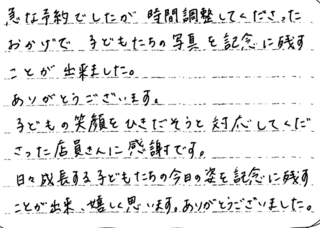 急な予約でしたが時間調整してくださった
おかげで 子どもたちの写真を記念に残す
ことが出来ました。
ありがとうございます。
子どもの笑顔をひきだそうと対応してくだ
さった店員さんに感謝です。
日々成長する子どもたちの今日の姿を記念に残す
ことが出来、嬉しく思います。ありがとうございました。